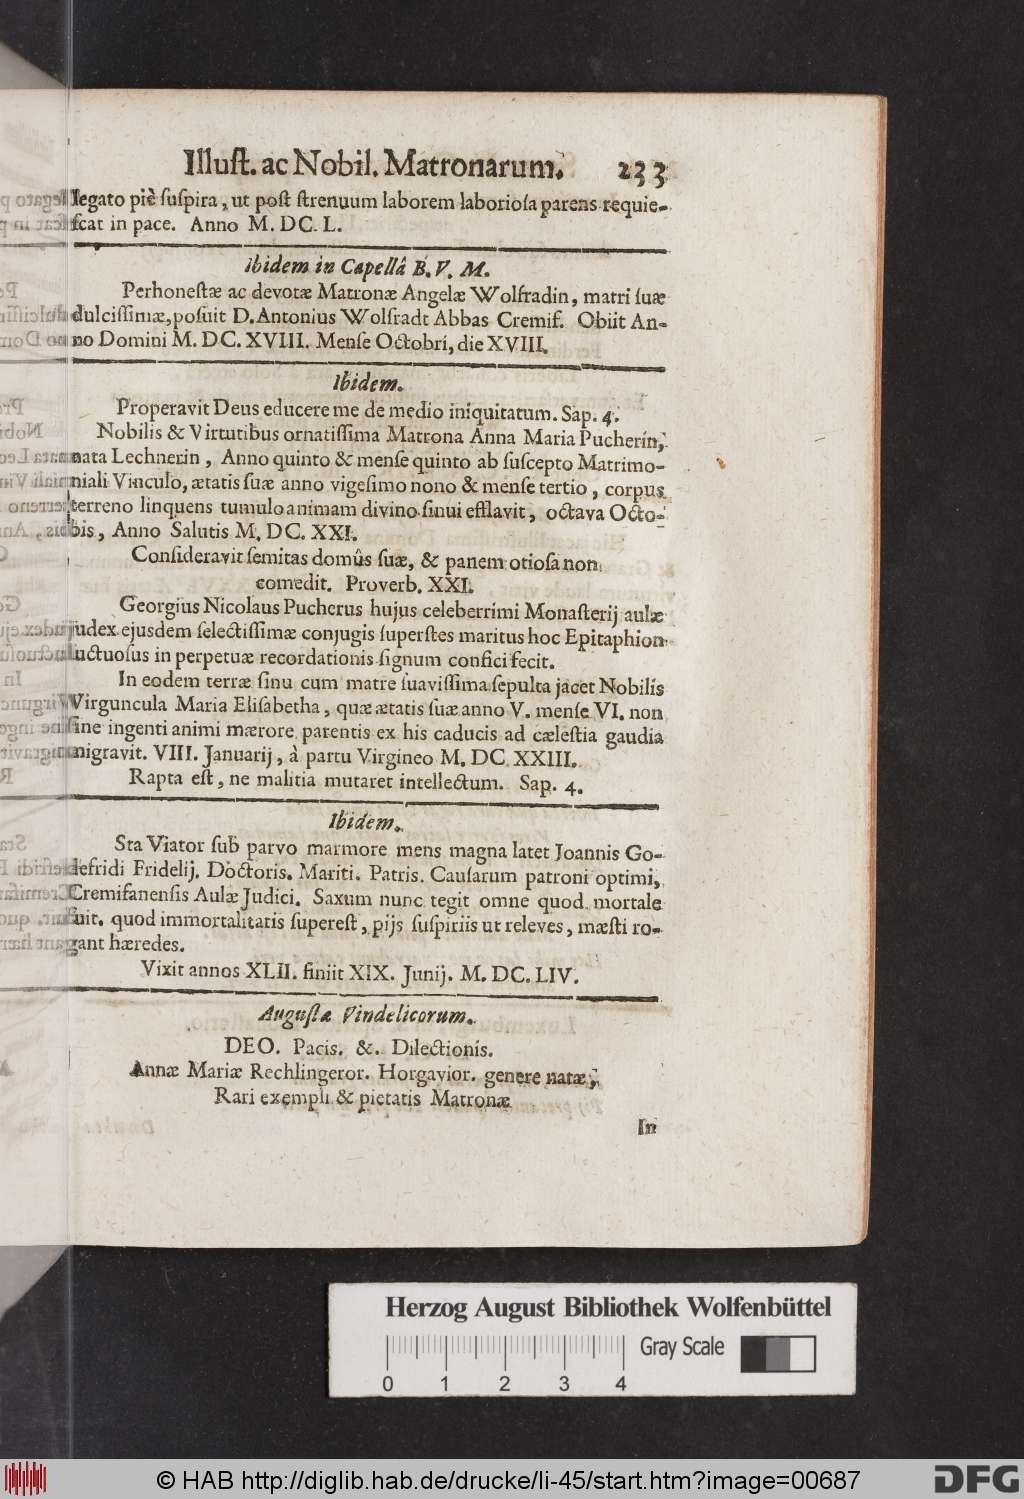 Illust. ac Nobil. Matronarum. 233
legato piè suspira, ut post strenuum laborem laboriosa parens requie-
scat in pace. Anno M. DC. L.
Ibidem in Capellâ B. V. M.
Perhonestæ ac devotæ Matronæ Angelæ Wolfradin, matri suæ
dulcissimæ, posuit D. Antonius Wolfradt Abbas Cremif. Obiit An-
no Domini M. DC. XVIII. Mense Octobri, die XVIII.
Ibidem.
Properavit Deus educere me de medio iniquitatum. Sap. 4.
Nobilis & Virtutibus ornatissima Matrona Anna Maria Pucherin,
nata Lechnerin, Anno quinto & mense quinto ab suscepto Matrimo-
niali Vinculo, ætatis suæ anno vigesimo nono & mense tertio, corpus
terreno linquens tumulo animam divino sinui efflavit, octava Octo-
bis, Anno Salutis M. DC. XXI.
Consideravit semitas domûs suæ, & panem otiosa non
comedit. Proverb. XXI.
Georgius Nicolaus Pucherus hujus celeberrimi Monasterij aulæ
judex ejusdem selectissimæ conjugis superstes maritus hoc Epitaphion
luctuosus in perpetuæ recordationis signum confici fecit.
In eodem terræ sinu cum matre suavissima sepulta jacet Nobilis
Virguncula Maria Elisabetha, quæ ætatis suæ anno V. mense VI. non
sine ingenti animi mærore parentis ex his caducis ad cælestia gaudia
migravit. VIII. Januarij, à partu Virgineo M. DC. XXIII.
Rapta est, ne malitia mutaret intellectum. Sap. 4.
Ibidem.
Sta Viator sub parvo marmore mens magna latet Joannis Go-
defridi Fridelij. Doctoris. Mariti. Patris. Causarum patroni optimi,
Cremifanensis Aulæ Judici. Saxum nunc tegit omne quod mortale
fuit. quod immortalitatis superest, pijs suspiriis ut releves, mæsti ro-
gant hæredes.
Vixit annos XLII. finiit XIX. Junij. M. DC. LIV.
Augustæ Vindelicorum.
DEO. Pacis. &. Dilectionis.
Annæ Mariæ Rechlingeror. Horgavior. genere natæ,
Rari exempli & pietatis Matronæ
In
Herzog August Bibliothek Wolfenbüttel
Gray Scale
0 1 2 3 4
© HAB http://diglib.hab.de/drucke/li-45/start.htm?image=00687
DFG